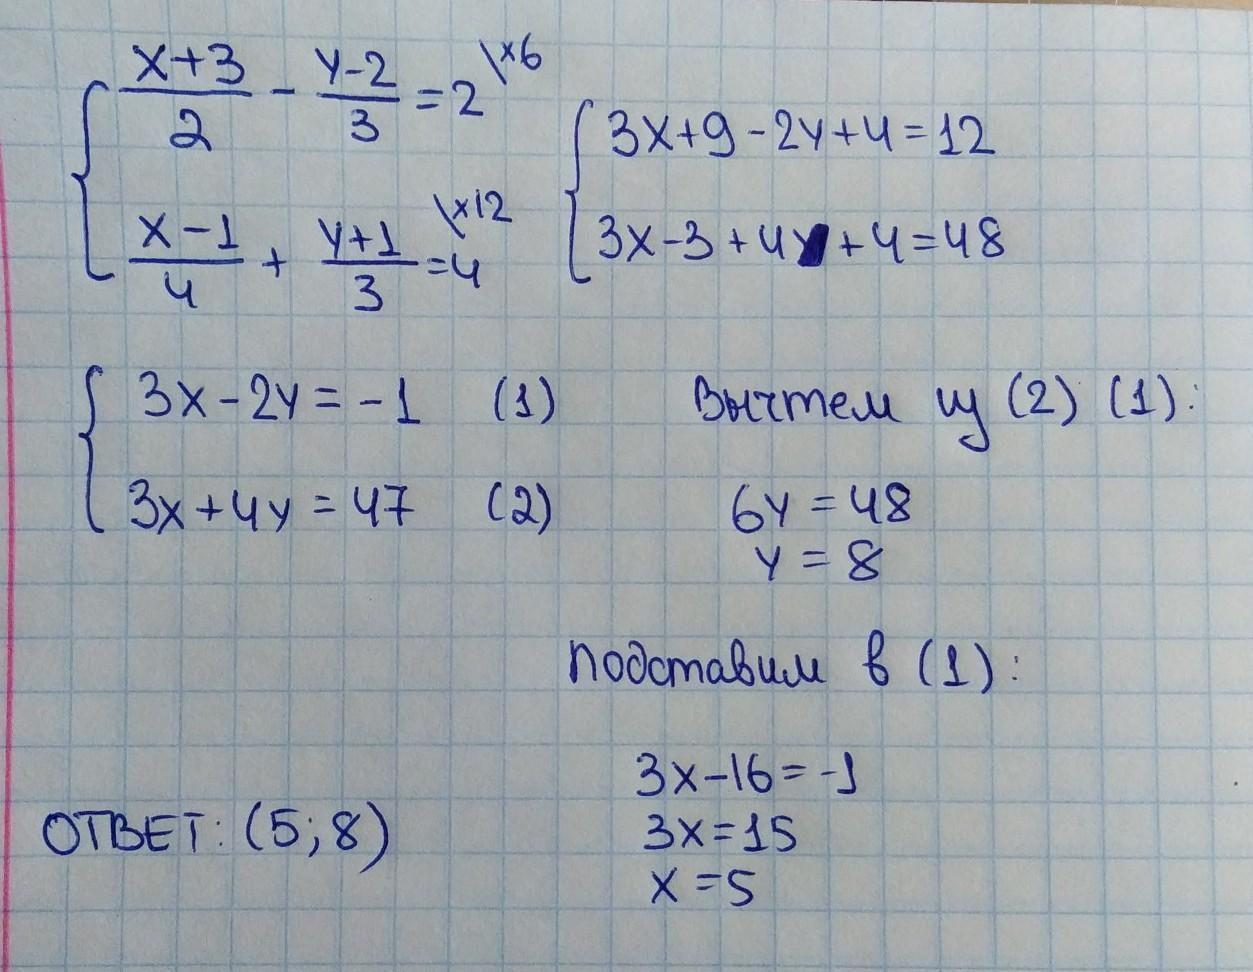 { (x+3)/2 - (y-2)/3 = 2 \×6
(x-1)/4 + (y+1)/3 = 4 \×12
{ 3x+9-2y+4=12
3x-3+4y+4=48
{ 3x-2y=-1 (1)
3x+4y=47 (2)
Вычтем из (2) (1):
6y=48
y=8
Подставим в (1):
3x-16=-1
3x=15
x=5
ОТВЕТ: (5;8)